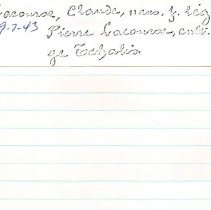 Lacourse, Claude, naus. f. lég
9-7-43 Pierre Lacourse, culti
ge Tchalis